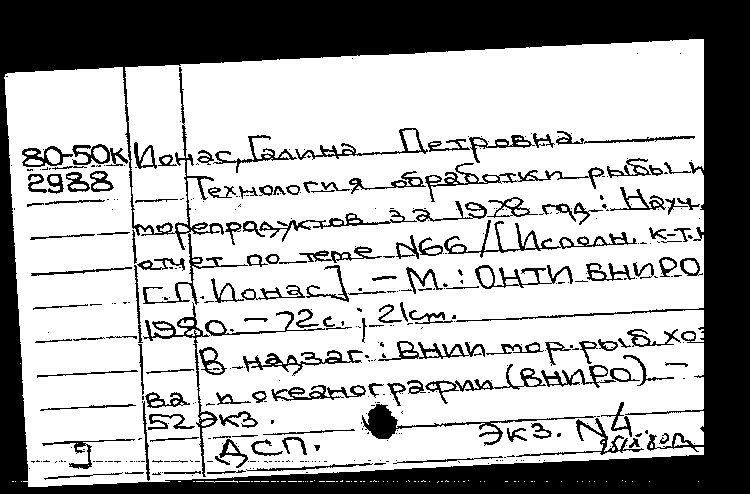 80-50к Ионас, Галина Петровна.
2988 Технология обработки рыбы и
морепродуктов за 1978 год : Науч.
отчет по теме N66 / [Исполн. к.т.н
Г.П. Ионас]. — М. : ОНТИ ВНИРО
1980. — 72 с. ; 21 см.
В надзаг. : ВНИИ мор. рыб. хоз
ва и океанографии (ВНИРО) —
52 экз.
ДСП. Экз. N4.